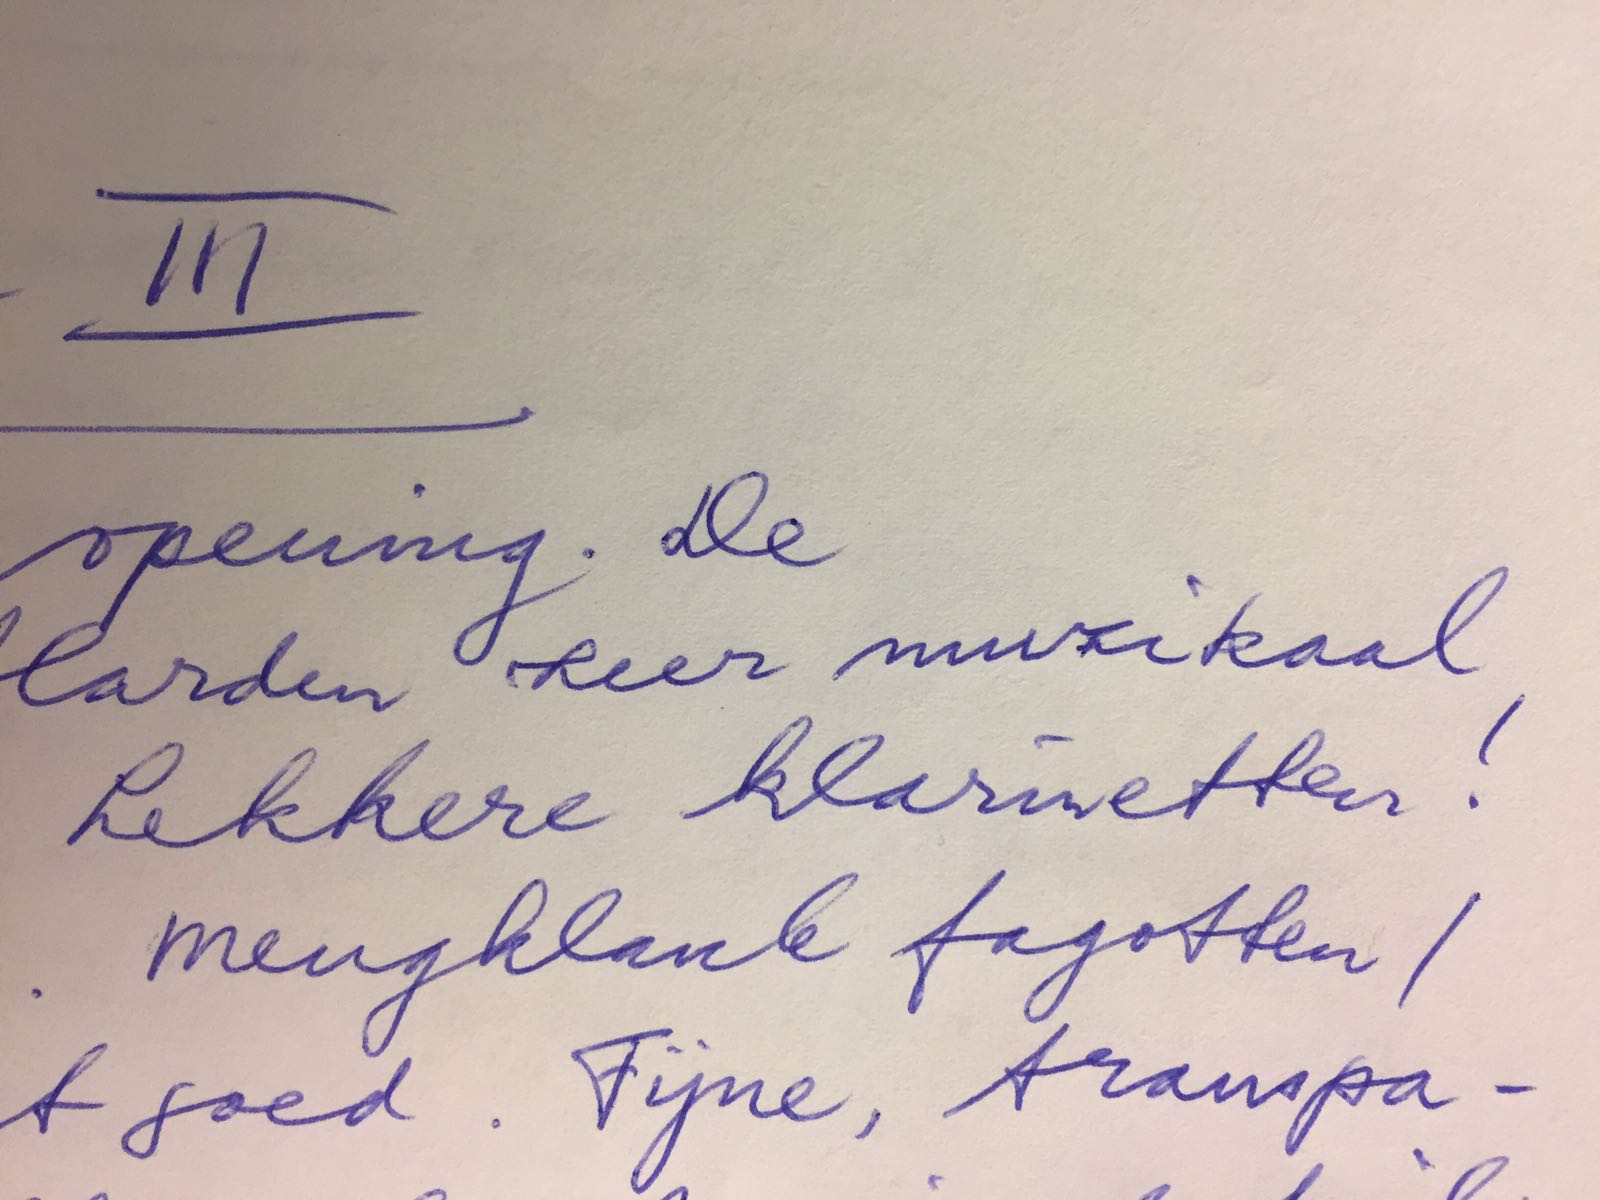 III
opening. De
larden zeer muzikaal
Lekkere klarinetten!
. Mengklank fagotten/
t goed. Fijne, transpa-